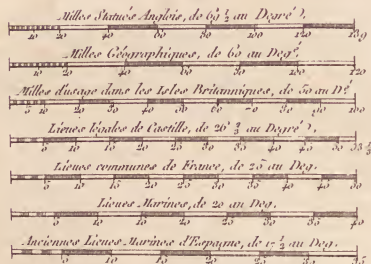 Milles Statués Anglois, de 69 ½ au Degré).
10 20 40 60 80 100 120 139
Milles Géographiques, de 60 au Degé.
10 20 40 60 80 100 120
Milles d'usage dans les Isles Britanniques, de 50 au Dé.
5 10 20 30 40 50 60 70 80 90 100
Lieues légales de Castille, de 26 ⅔ au Degré),
5 10 15 20 25 30 35 40 45 50 53 ⅓
Lieues communes de France, de 25 au Deg.
5 10 15 20 25 30 35 40 45 50
Lieues Marines, de 20 au Deg.
5 10 15 20 25 30 35 40
Anciennes Lieues Marines d'Espagne, de 17 ½ au Deg.
5 10 15 20 25 30 35